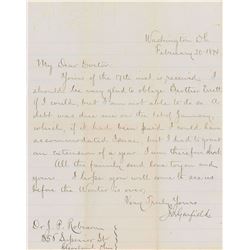 Washington D.C.
February 20. 1874
My Dear Doctor
Yours of the 17th inst is received. I
should be very glad to oblige Brother Everett
if I could, but I am not able to do so. A
debt was due me on the 1st of January
which, if it had been paid I could have
accommodated Everett. but I had to grant
an extension of a year I am therefore hard
All the family send love to you and
yours. I hope you will come to see us
before the Winter is over,
Very Truly Yours
J. A. Garfield
Dr. J. P. Robison
855 Superior St
Cleveland Ohio